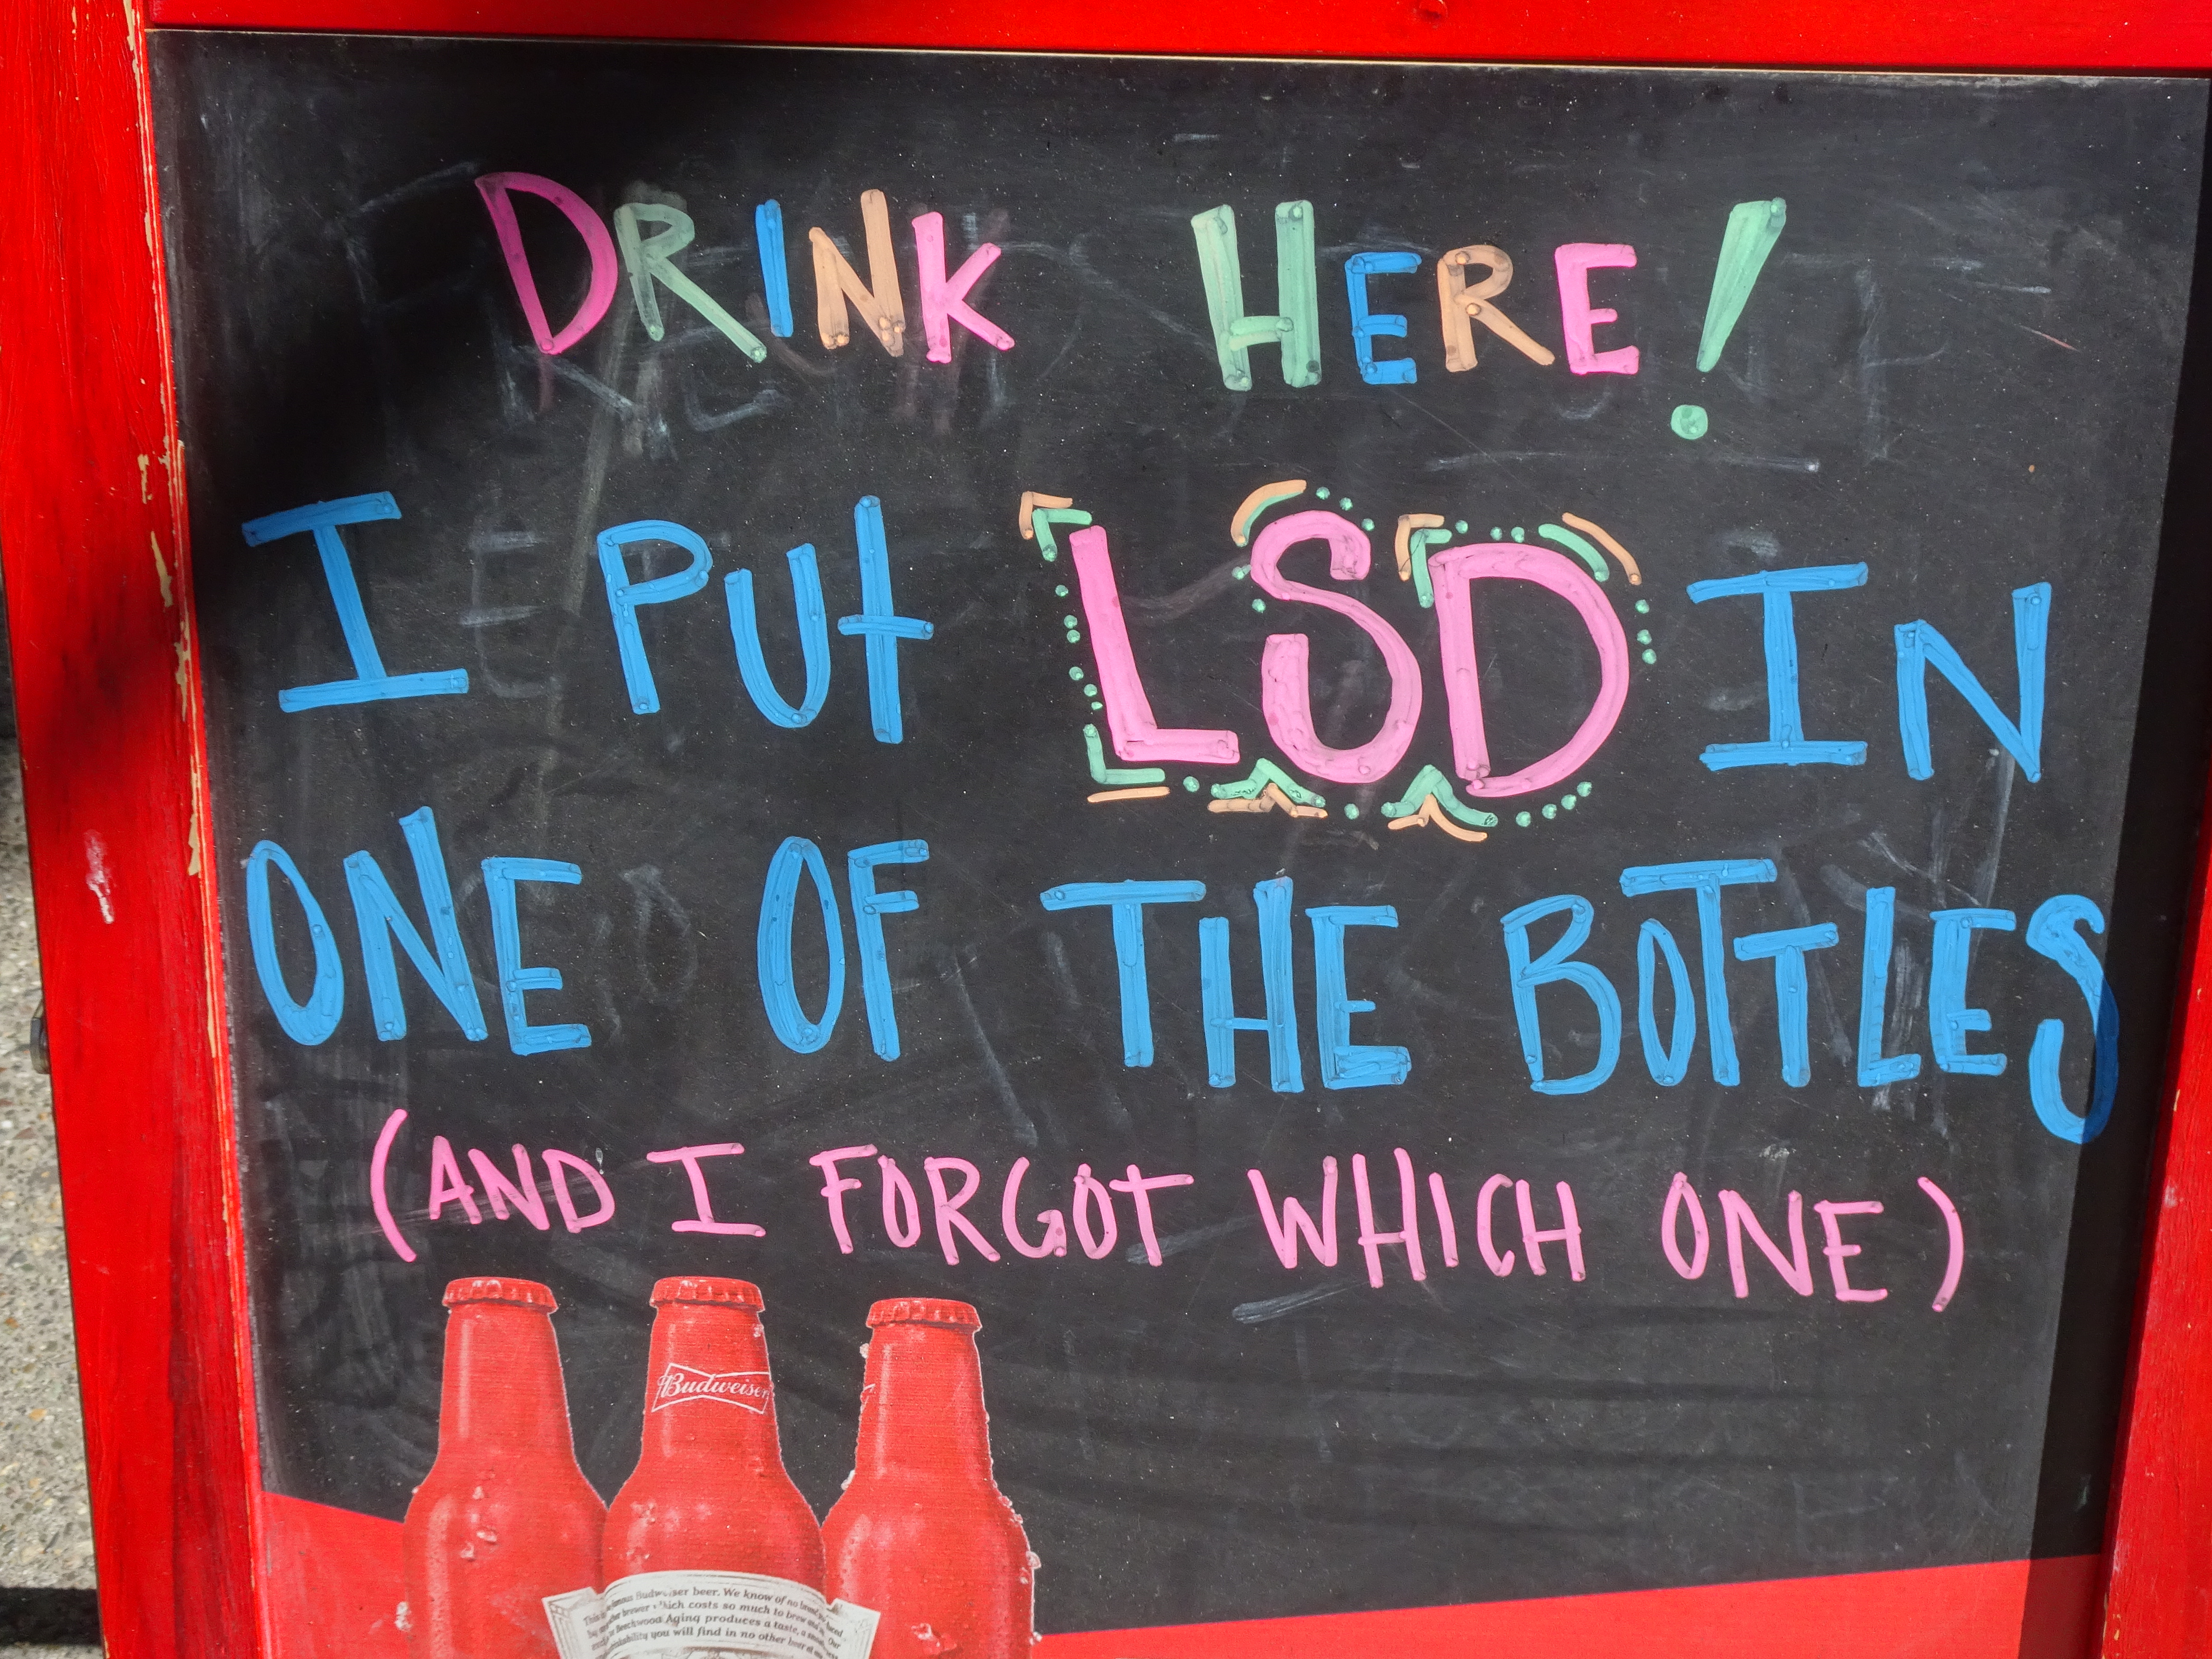 DRINK HERE!
I PUt LSD IN
ONE OF THE BOTTLES
(AND I FORGOT WHICH ONE)
Budweiser
beer. We know of no brand
brewer which costs so much to brew and
Beechwood Aging produces a taste, a
you will find in no other beer at